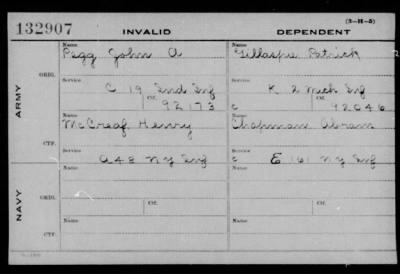 (3-H-5)
132907 INVALID DEPENDENT
ARMY
ORIG.
Name Pegg John A
Name Gillaspie Patrick
Service C 19 Ind Inf
Service K 2 Mich Inf
Ctf. 92173
C Ctf. 92646
CTF.
Name McCreaf Henry
Name Chapman Abram
Service A 48 NY Inf
Service C E 161 NY Inf
NAVY
ORIG.
Name
Name
Service
Service
Ctf.
Ctf.
CTF.
Name
Name